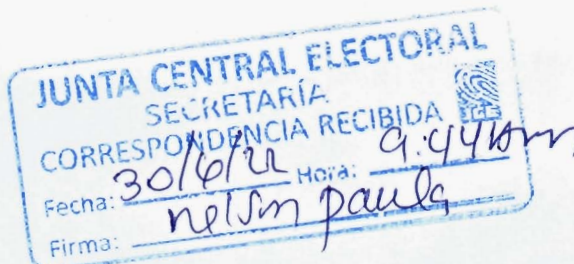 JUNTA CENTRAL ELECTORAL
SECRETARÍA
CORRESPONDENCIA RECIBIDA
Fecha: 30/6/22 Hora: 9:44 Am
Firma: nelson paula